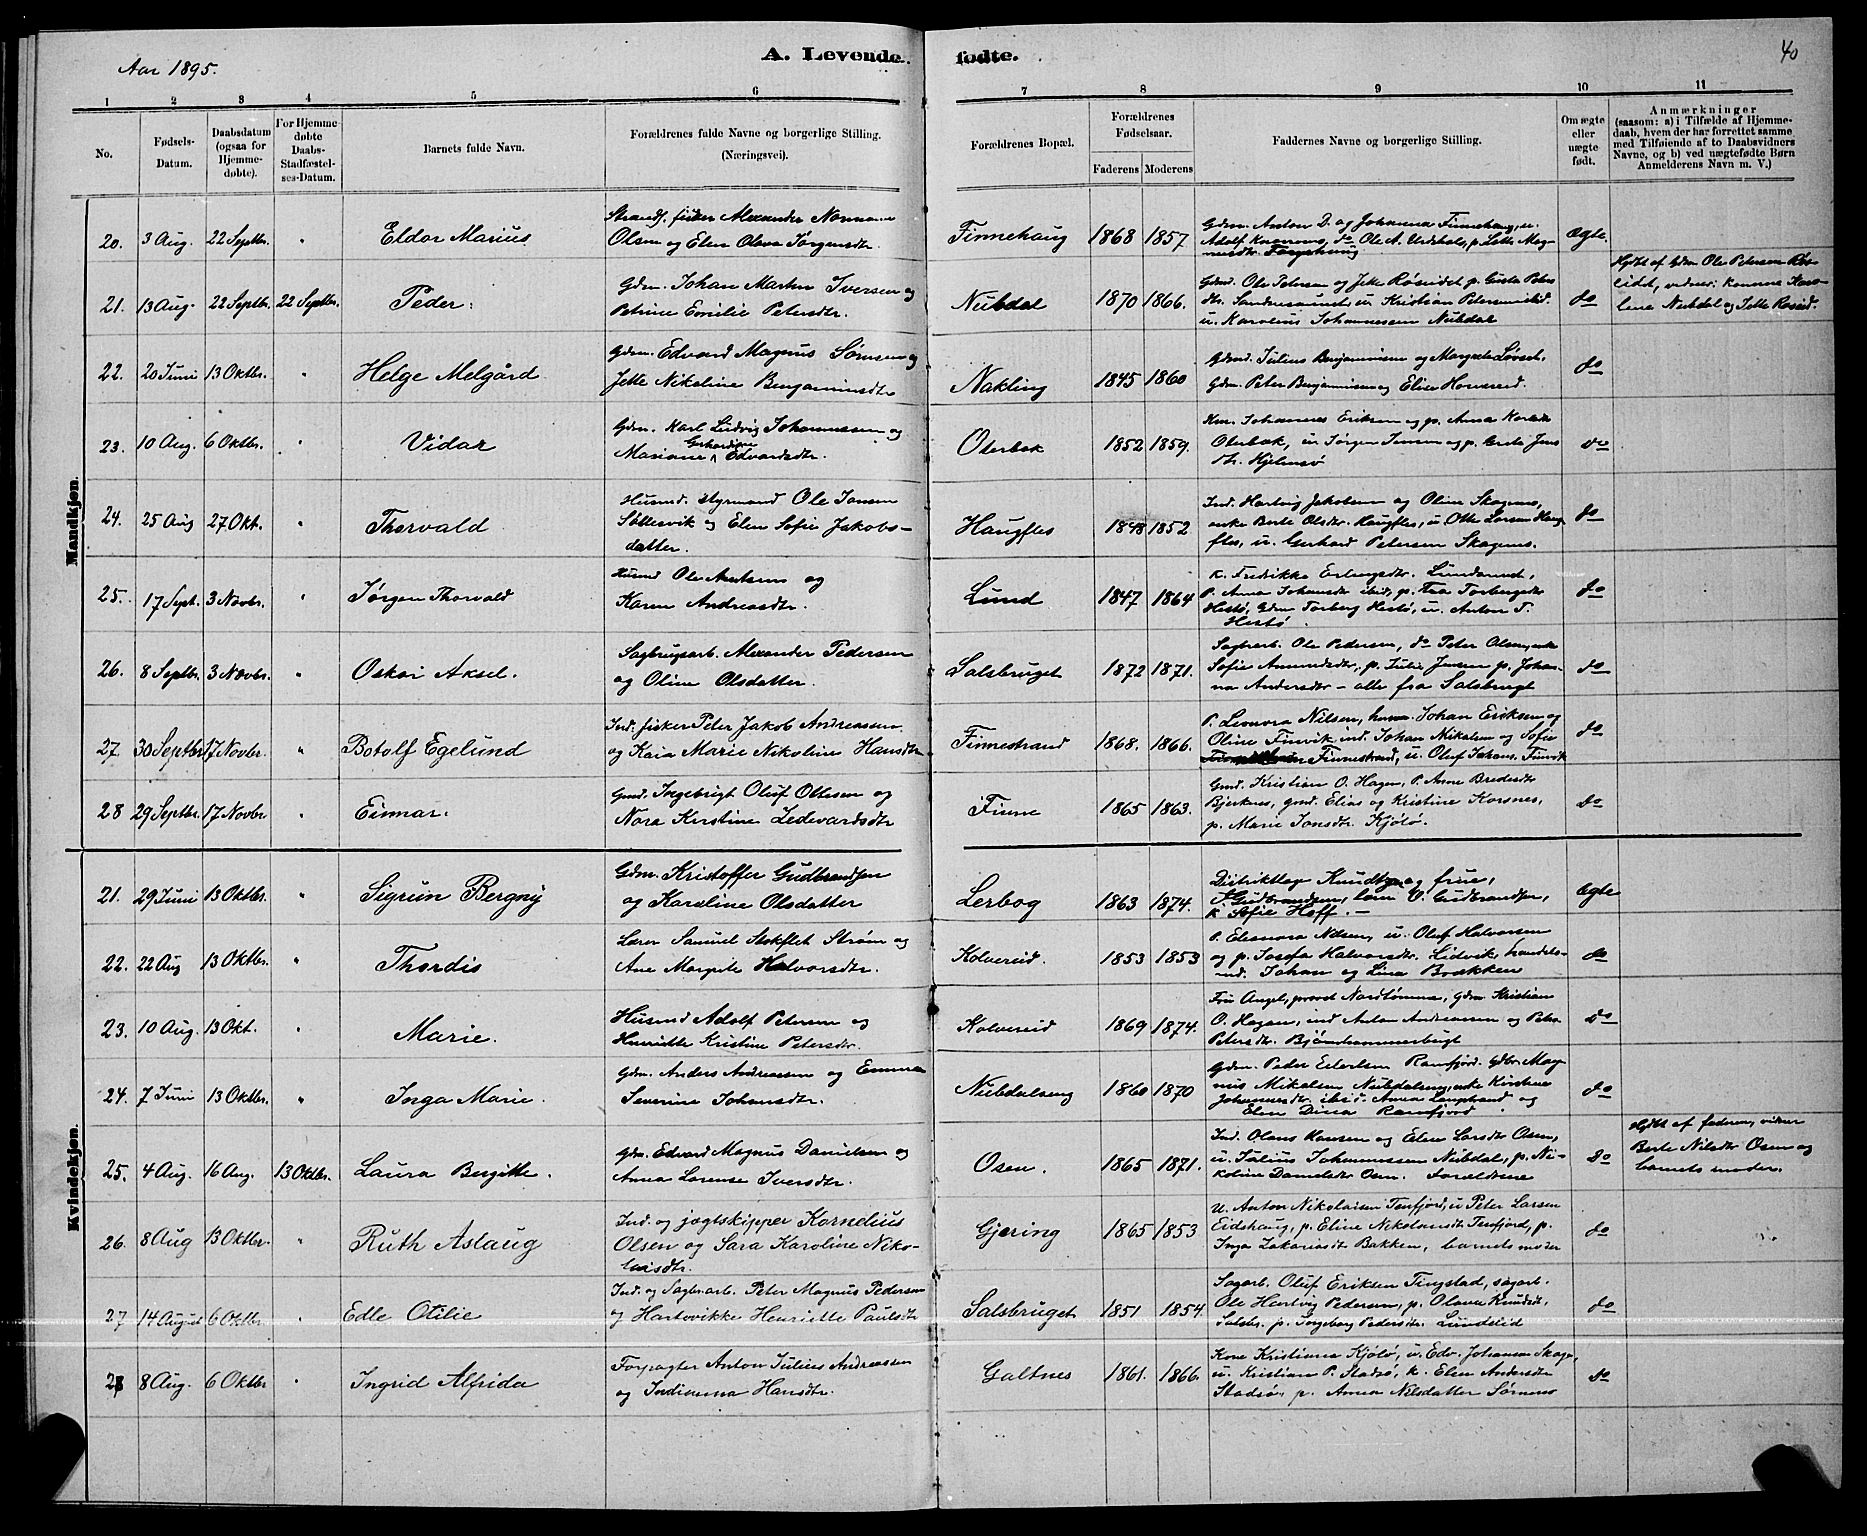 Aar 1895.
A. Levende
fødte.
40
1 2 3 4 5 6 7 8 9 10 11
No.
Fødsels-
Datum.
Daabsdatum
(ogsaa for
Hjemme-
døbte).
For Hjemme-
døbte
Daabs-
Stadfæstel-
ses-Datum.
Barnets fulde Navn.
Forældrenes fulde Navne og borgerlige Stilling.
(Næringsvei).
Forældrenes Bopæl.
Forældrenes
Fødselsaar.
Faderens Moderens
Faddernes Navne og borgerlige Stilling.
Om ægte
eller
uægte
født.
Anmærkninger
(saasom: a) i Tilfælde af Hjemme-
daab, hvem der har forrettet samme
med Tilføiende af to Daabsvidners
Navne, og b) ved uægtefødte Børn
Anmelderens Navn m. V.)
Mandkjøn.
20. 3 Aug. 22 Septbr. " Eldor Marius
Strands. fisker Alexander Normann
Olsen og Elen Olava Jørgensdtr.
Finnehaug 1868 1857
Gdm. Anton D. og Johanna Finnehaug, u.
ægte.
21. 13 Aug. 22 Septbr. 22 Septbr. Peder.
Gdm. Johan Martin Iversen og
Petrine Emilie Petersdtr.
Nubdal 1870 1866.
Gdmd. Ole Petersen og Jette Røseidet p. Gusta Peters
dtr. u. Kristian Petersen ibid.
u. Karolius Johannessen Nubdal
do
Hjdbt af Gdm Ole Petersen Røs-
eidet, vidner: konerne Karo-
line Nubdal og Jette Røseid.
22. 20 Juni 13 Oktbr. " Helge Melgård
Gdm. Edvard Magnus Sørensen og
Jette Nikoline Benjaminsdtr
Nakling 1845 1860
Gdmd. Julius Benjaminsen og Margrete Løvset.
Gdm. Peter Benjaminsen og Elise
do
23. 10 Aug. 6 Oktbr. " Vidar
Gdm. Karl Ludvig Johannessen og
Mariane Gerhardine Edvardsdtr.
Oterbæk 1852 1859.
Johannes Eriksen og p. Anna
Oterbæk, u. Jørgen Jensen og p. Jens
dtr. Kjelmsø
do
24. 25 Aug 27 Okt. " Thorvald
Husmd. styrmand Ole Jansen
Søllesvik og Elen Sofie Jakobs-
datter.
Haugfles 1848 1852
Ind. Hartvig Jakobsen og Oline Skagenes,
enke Berte Olsdtr. Haugfles, u. Otto Larsen Haug
fles, u. Gerhard Petersen Skagenes.
do
25. 17 Sept. 3 Novbr. " Jørgen Thorvald
Husmd Ole Antsens og
Karen Andreasdtr.
Lund 1847 1864
K. Fredrikke
P. Anna Johansdtr ibid, p. Torbergsdtr
Hestø, Gdm Torberg Hestø, u. Anton T.
Hestø.
do
26. 8 Septbr. 3 Novbr. " Oskar Aksel.
Sagbrugsarb. Alexander Pedersen
og Oline Olsdatter.
Salsbruget 1872 1871.
Sagbrarb. Ole Pedersen, do Peter Olsen, enke
Sofie Amundsdtr., p. Julie Jensen p. Johan-
na Andersdtr – alle fra Salsbruget
do
27. 30 Septbr 17 Novbr. " Botolf Egelund
Ind. fisker Peter Jakob Andreassen
og Kaia Marie Nikoline Hansdtr
Finnestrand 1868. 1866.
P. Leonora Nilsen, Johan Eriksen og
Oline Finvik ind. Johan Nikolsen og Sofie
Finnestrand, u. Oluf Johans. Finvik
do
28 29 Septbr. 17 Novbr " Einnar.
Gmd. Ingebrigt Oluf Ottesen og
Nora Kirstine Ledevardsdtr
Finne 1865 1863.
Gmd. Kristian O. Hagen, P. Anne Bredesdtr
Bjerknes, gmd. Elias og Kristine Korsnes,
p. Marie Jonsdtr. Kjølø.
do
Kvindekjøn.
21. 29 Juni 13 Oktbr. " Sigrun Bergny
Gdm. Kristoffer Gudbrandsen
og Karoline Olsdatter
Lerbog 1863 1874.
Distriktlæge Knudtzon og frue,
Gudbrandsen, O. Gudbrandsen,
K Sofie Hoff. –
ægte
22. 22 Aug 13 Oktbr. " Thordis
Lærer Samuel Stokflet Strøm og
Ane Margrete Halvorsdtr.
Kolvereid. 1853 1853
P. Eleonora Nilsen, u. Oluf Halvorsen
og p. Josefa Halvorsdtr. Lidvik, handels-
md. Johan og Lina Brækken
do
23. 10 Aug. 13 Okt. " Marie.
Husmd Adolf Petersen og
Henriette Kristine Petersdtr.
Kolvereid 1869 1874.
Fru Angel, provst Nordtømme, Gdm. Kristian
O. Hagen, ind Anton Andreassen og
Petersdtr.
do
24. 7 Juni 13 Oktbr. " Inga Marie.
Gdm. Anders Andreassen og Emma
Severine Johansdtr.
Nubdalseng 1860 1870
Gdm. Peder Ranfjord. Gdbr. Mag-
nus Mikalsen Nubdalseng, enke
Johannesdtr. ibid. Anna og
Elen Dina Ranfjord.
do
25. 4 Aug. 16 Aug. 13 Oktbr. Laura Bergitte.
Gdm. Edvard Magnus Danielsen og
Anna Lorense Iversdtr.
Osen. 1865 1871.
Ind. Olaus Hansen og Elen Larsdtr Osen,
u. Julius Johannessen Nubdal, p. Ni-
koline Danielsdtr Osen. Forældrene
do
Hjdbt af faderen, vidner
Berte Nilsdtr Osen og
barnets moder.
26. 8 Aug 13 Oktbr. " Ruth Aslaug
Ind. og jægtskipper Kornelius
Olsen og Sara Karoline Niko-
laisdtr.
Gjæring 1865 1853
U. Anton Nikolaisen Tenfjord, u Peter Larsen
Eidshaug, p. Eline Nikolaisdtr Tenfjord, p.
Inga Zakariasdtr Bakken, barnets moder
do
27 14 August 6 Oktbr " Edle Otilie
Ind. og Sagbr.arb. Peter Magnus Pedersen
og Hartvikke Henriette Paulsdtr
Salsbruget 1851 1854.
Sagarb. Oluf Eriksen Tingstad, sagarb.
Ole Hartvig Pedersen, p. Olava Knudsdt,
Salsbr. p. Ingeborg Pedersdtr. Lundslid
do
28 8 Aug. 6 Oktbr " Ingrid Alfrida
Forpagter Anton Julius Andreassen
og Indianna Hansdtr.
Galtnes 1861. 1866.
Kone Kristiane Kjølø, u. Edv. Johansen
u. Kristian P. Stadsø, k. Elen Andersdtr
Stadsø, p. Anna Nilsdatter
do